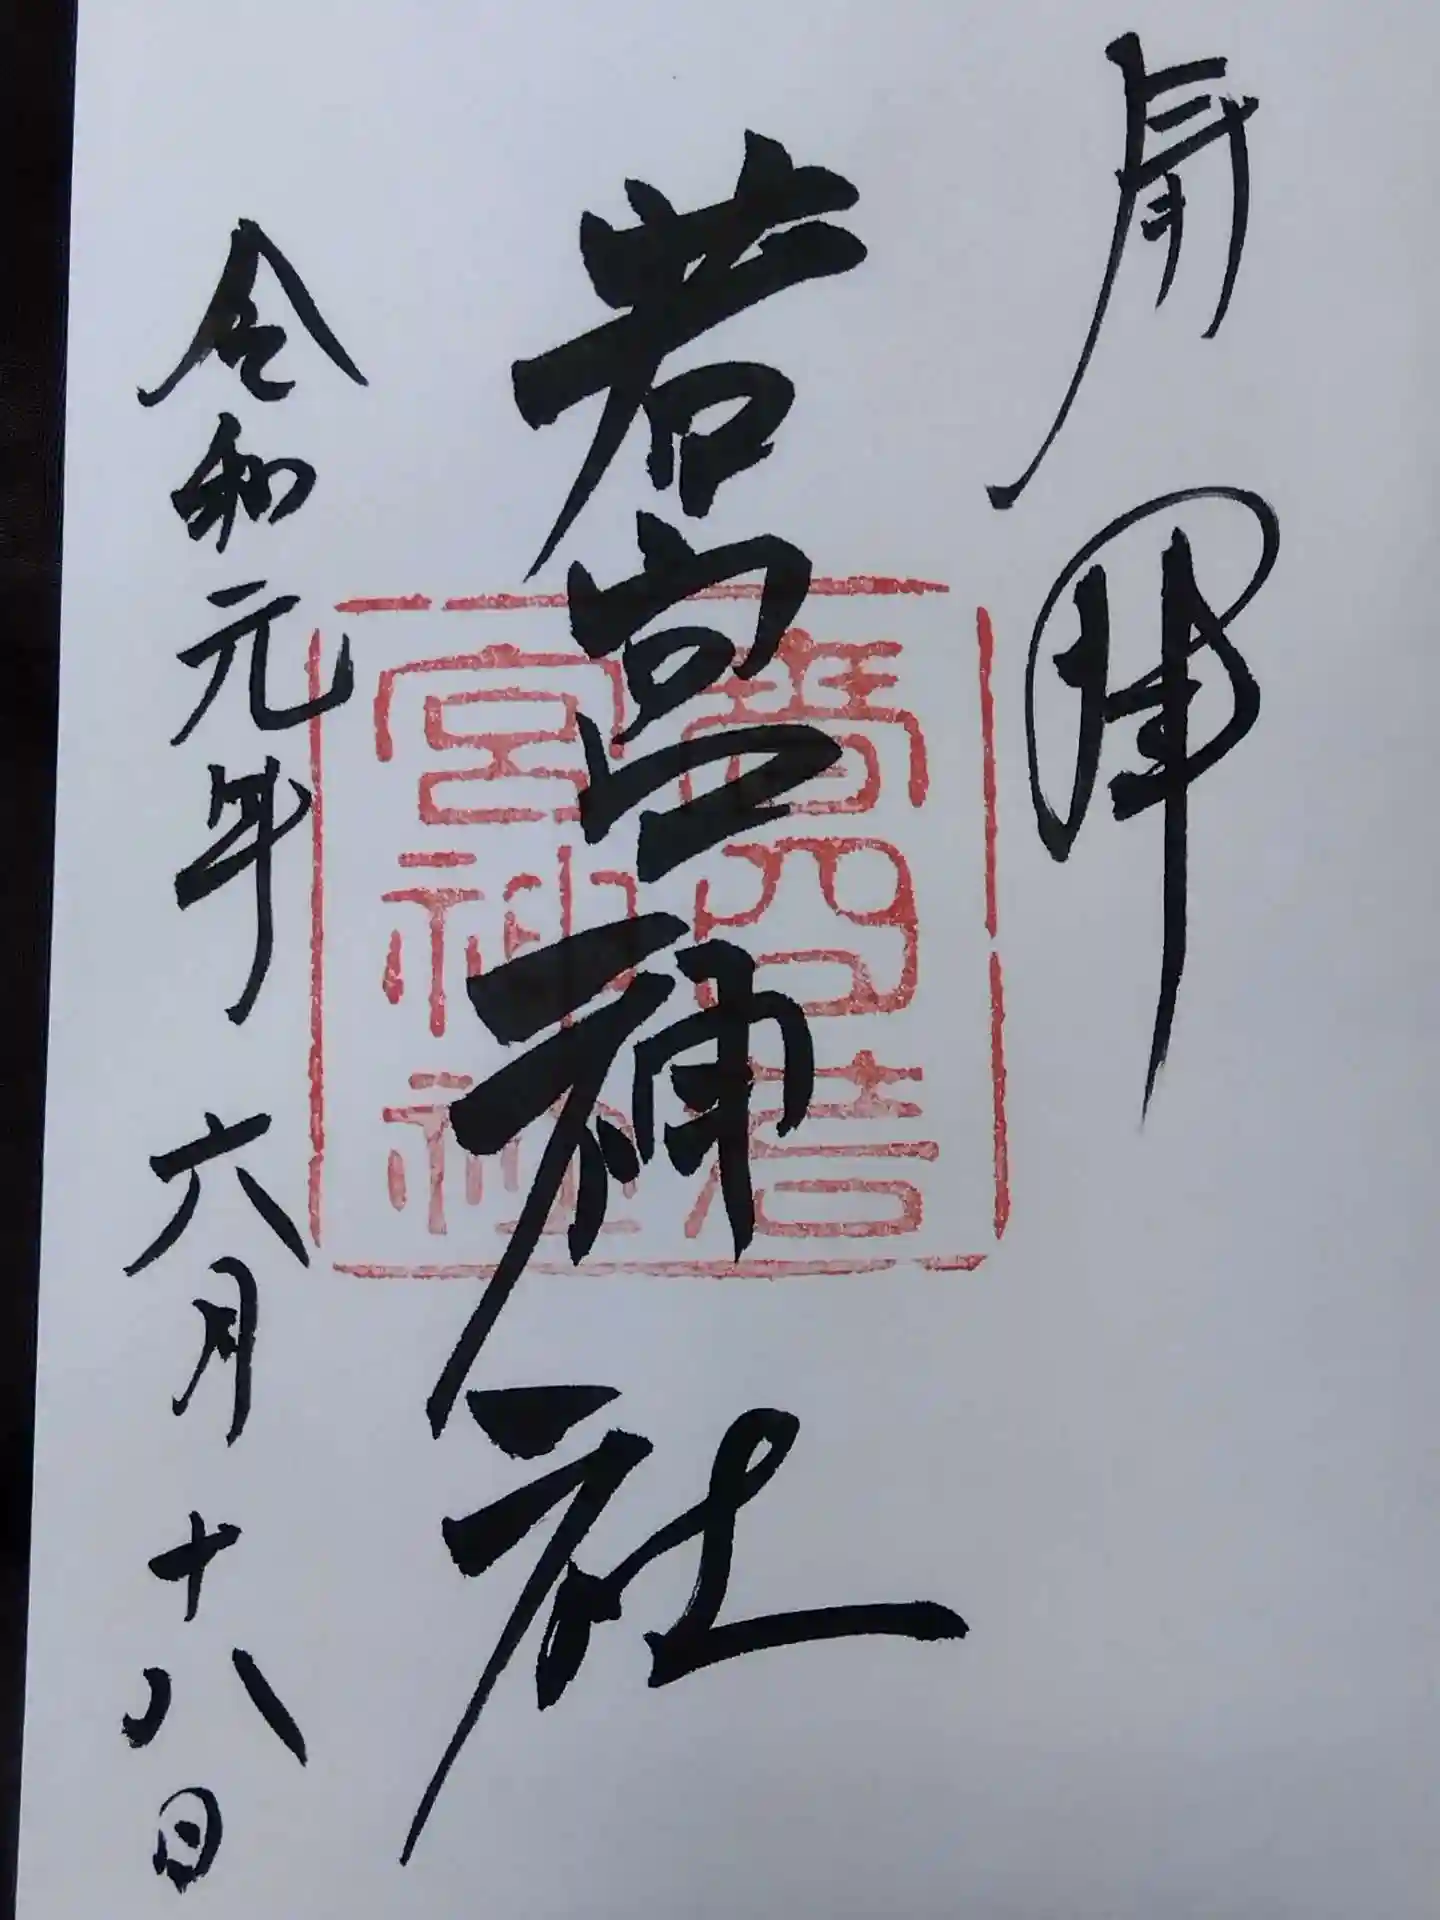 拝
若宮神社
四若
宮神社
令和元年 六月 十八日